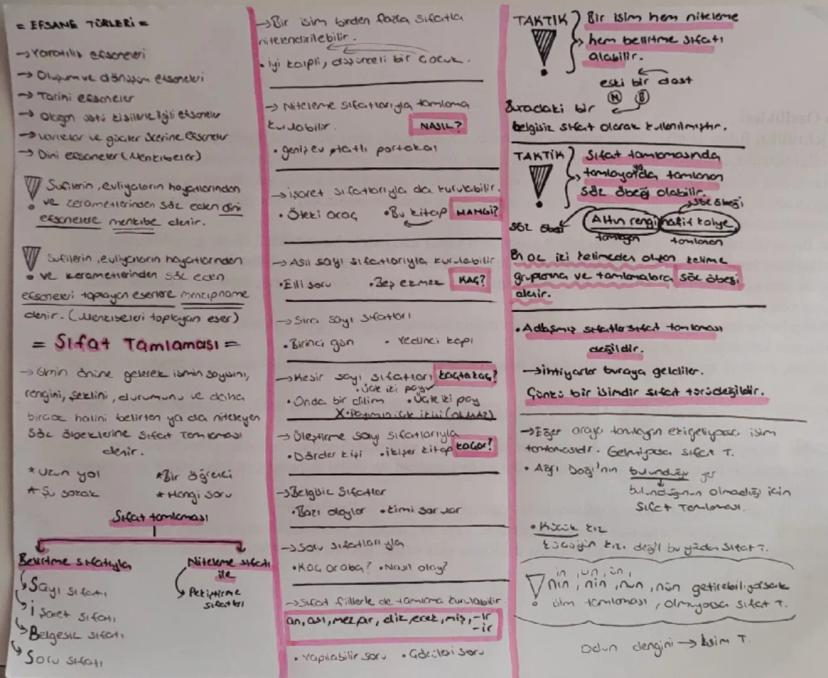 = EFSANE TÜRLERİ =
→ Yaratılış efsaneleri
→ Oluşum ve dönüşüm efsaneleri
→ Tarihi efsaneler
→ Olağan üstü kişilerle ilgili efsaneler
→ Varlıklar ve güçler üzerine efsaneler
→ Dini efsaneler (Menkıbeler)
! Sufilerin, evliyaların hayatlarından
ve kerametlerinden söz eden dini
efsanelere menkıbe denir.
! Sufilerin, evliyaların hayatlarından
ve kerametlerinden söz eden
efsaneleri toplayan eserlere menkıpname
denir. (Menkıbeleri toplayan eser)
= Sıfat Tamlaması =
→ İsmin önüne gelerek ismin sayısını,
rengini, şeklini, durumunu ve daha
birçok halini belirten ya da niteleyen
söz öbeklerine sıfat tamlaması
denir.
* Uzun yol * Bir öğrenci
* Şu sokak * Hangi soru
Sıfat tamlaması
Belirtme sıfatıyla
Niteleme sıfatı
ile
Sayı sıfatı
İşaret sıfatı
Belgesiz sıfatı
Soru sıfatı
Pekiştirme
sıfatları
→ Bir isim birden fazla sıfatla
nitelendirilebilir.
• İyi kalpli, düşünceli bir çocuk.
→ Niteleme sıfatlarıyla tamlama
kurulabilir. NASIL?
• geniş ev tatlı portakal
→ işaret sıfatlarıyla da kurulabilir.
• Öteki araç • Bu kitap HANGİ?
→ Asıl sayı sıfatlarıyla kurulabilir
• Elli soru • Beş ekmek KAÇ?
→ Sıra sayı sıfatları
• Birinci gün • Yedinci kapı
→ Kesir sayı sıfatları KAÇTA KAÇ?
• Onda bir dilim • Üçte iki pay
→ Üleştirme sayı sıfatlarıyla
• Dörder kişi • ikişer kitap KAÇAR?
→ Belgisiz Sıfatlar
• Bazı olaylar • Kimi sorular
→ Soru sıfatlarıyla
• Kaç araba? • Nasıl olay?
→ Sıfat fiillerle de tamlama kurulabilir.
an, ası, mez, ar, dik, ecek, miş, -ır
-ir
• Yapılabilir soru
TAKTİK ! Bir isim hem niteleme
hem belirtme sıfatı
alabilir.
eski bir dost
N B
Buradaki bir
belgisiz sıfat olarak kullanılmıştır.
TAKTİK ! Sıfat tamlamasında
tamlayan da tamlanan
söz öbeği olabilir.
söz öbeği
söz öbeği Altın rengi nazik kolye
tamlayan tamlanan
En az iki kelimeden oluşan kelime
gruplama ve tamlamalara söz öbeği
denir.
• Adlaşmış sıfatlar sıfat tamlaması
değildir.
→ ihtiyarlar buraya geldiler.
Çünkü bir isimdir sıfat türü değildir.
→ Eğer araya tamlayan eki geliyosa isim
tamlamasıdır. Gelmiyosa sıfat T.
• Ağrı Dağı'nın bulunduğu yer
bulunduğunun olmadığı için
Sıfat Tamlaması.
• Küçük kız
küçüğün kızı değil bu yüzden sıfat T.
! ın, un, ün,
nın, nin, nun, nün getirebiliyorsak
isim tamlaması, olmuyosa sıfat T.
Odun dengini → İsim T.